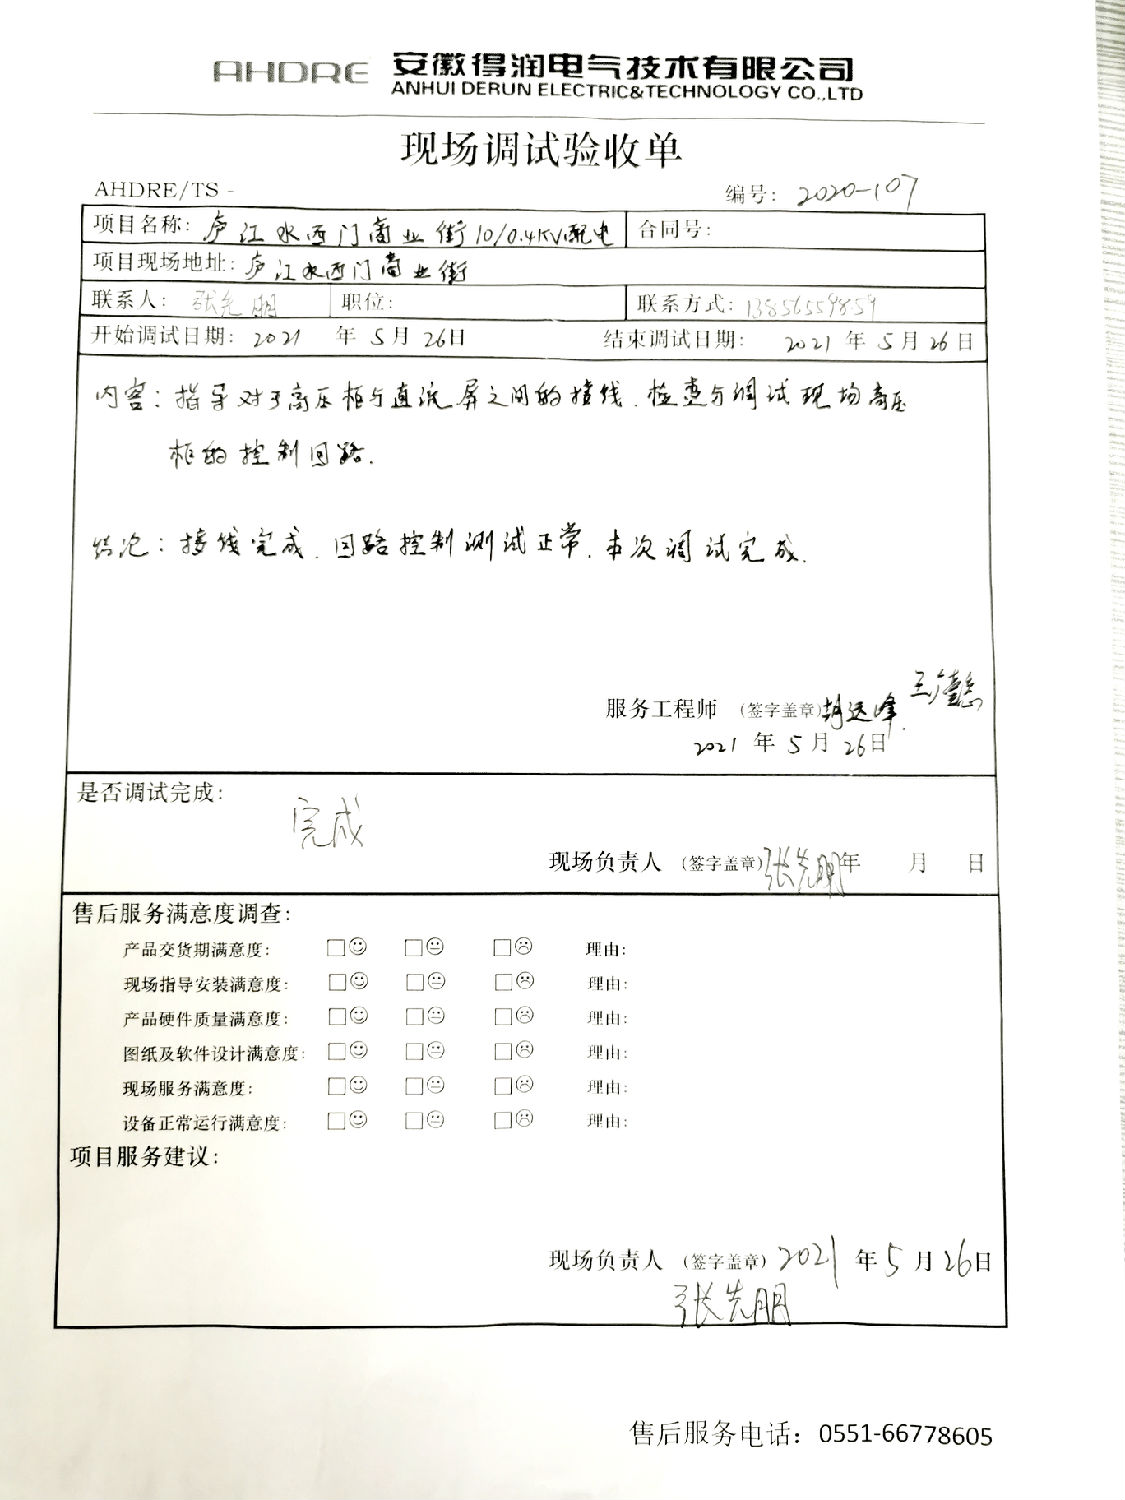 AHDRE 安徽得润电气技术有限公司
ANHUI DERUN ELECTRIC&TECHNOLOGY CO.,LTD
现场调试验收单
AHDRE/TS - 编号: 2020-107
项目名称: 庐江水西门商业街10/0.4KV配电 合同号:
项目现场地址: 庐江水西门商业街
联系人: 张先朋 职位: 联系方式: 13856559859
开始调试日期: 2021 年 5 月 26日 结束调试日期: 2021 年 5 月 26 日
内容: 指导对于高压柜与直流屏之间的接线.检查与调试现场高压
柜的控制回路.
结论: 接线完成.回路控制测试正常.本次调试完成.
服务工程师 (签字盖章) 胡远峰.
2021 年 5 月 26日
是否调试完成:
完成
现场负责人 (签字盖章) 张先朋 年 月 日
售后服务满意度调查:
产品交货期满意度: □☺ □😐 □☹ 理由:
现场指导安装满意度: □☺ □😐 □☹ 理由:
产品硬件质量满意度: □☺ □😐 □☹ 理由:
图纸及软件设计满意度: □☺ □😐 □☹ 理由:
现场服务满意度: □☺ □😐 □☹ 理由:
设备正常运行满意度: □☺ □😐 □☹ 理由:
项目服务建议:
现场负责人 (签字盖章) 2021 年 5 月 26日
张先朋
售后服务电话: 0551-66778605